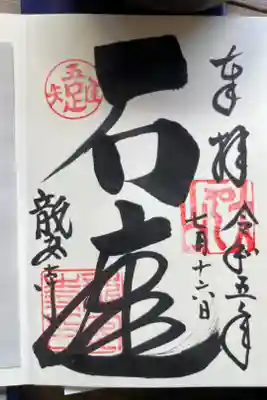 奉拝
令和五年
七月十六日
石庭
龍安寺